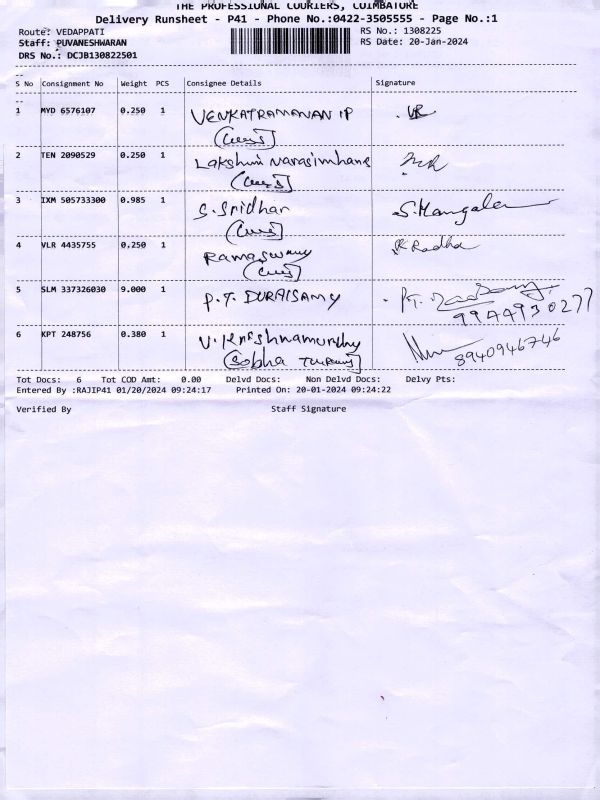 THE PROFESSIONAL COURIERS, COIMBATORE
Delivery Runsheet - P41 - Phone No.:0422-3505555 - Page No.:1
Route: VEDAPPATI RS No.: 1308225
Staff: PUVANESHWARAN RS Date: 20-Jan-2024
DRS No.: DCJB130822501
S No Consignment No Weight PCS Consignee Details Signature
1 MYD 6576107 0.250 1 VENKATRAMANAN IP VR
2 TEN 2090529 0.250 1 Lakshmi Narasimhan
3 IXM 505733300 0.985 1 S. Sridhar S. Mangalam
4 VLR 4435755 0,250 1 Ramaswamy R Radha
5 SLM 337326030 9.000 1 P.T. DURAISAMY P.T.
9944930277
6 KPT 248756 0.380 1 V. Krishnamurthy
(Sobha 8940946746
Tot Docs: 6 Tot COD Amt: 0.00 Delvd Docs: Non Delvd Docs: Delvy Pts:
Entered By :RAJIP41 01/20/2024 09:24:17 Printed On: 20-01-2024 09:24:22
Verified By Staff Signature